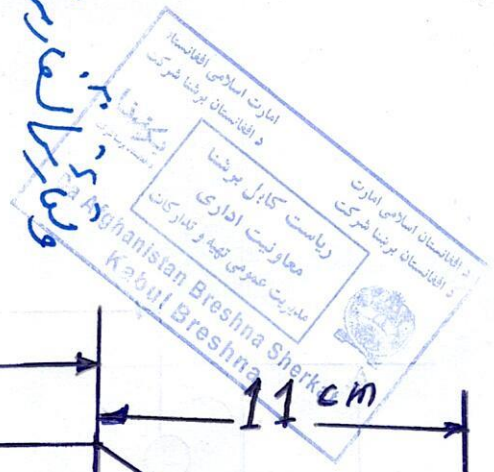 امارت اسلامی افغانستان
د افغانستان برښنا شرکت
د افغانستان اسلامی امارت
د افغانستان برښنا شرکت
ریاست کابل برشنا
معاونیت اداری
مدیریت عمومی تهیه و تدارکات
Da Afghanistan Breshna Sherkat
Kabul Breshna
11 cm